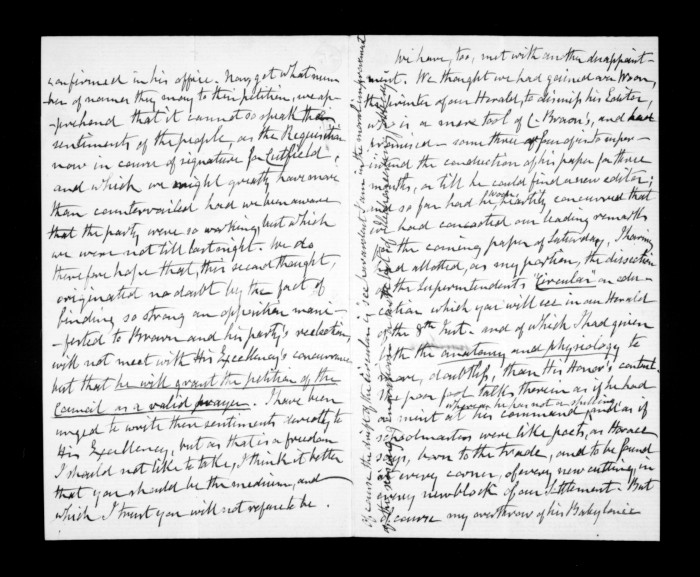 confirmed in his office. Now, get what num-
ber of names they may to their petition, we ap-
-prehend that it cannot so speak the
sentiments of the people, as the Requisition
now in course of signature for Cutfield,
and which we might greatly have more
than countervailed had we been aware
that the party were so working, but which
we were not till last night. We do
therefore hope that, this second thought,
originated no doubt by the fact of
finding so strong an opposition mani-
-fested to Brown and his party's reelection,
will not meet with His Excellency's concurrence
but that he will grant the petition of the
Council as a valid prayer. I have been
urged to write these sentiments directly to
His Excellency, but as that is a freedom
I should not like to take, I think it better
that you should be the medium, and
which I trust you will not refuse to be.
We have, too, met with another disappoint-
ment. We thought we had gained over Woon,
the printer of our Herald, to dismiss his Editor,
who is a mere tool of C. Brown's, and had
promised some three or four of us to super-
-intend the conduction of his paper for three
months, or till he could find a new editor;
and so far had he (Woon) heartily concurred that
had concocted our leading remarks
the coming paper of Saturday, I having
had allotted, as my portion, the dissection
the Superintendent's "Circular" on edu-
cation which you will see in our Herald
the 8th Inst. and of which I had given
the anatomy and physiology to
more, doubtless, than His Honor's content.
The poor fool talks therein as if he had
a mint at his command whereas he has not a shilling and as if
schoolmasters were like poets, as Horace
says, born to the trade, and to be found
in every corner, of every new cutting, in
every new block of our Settlement. But
of course my overthrow of his Babylonic